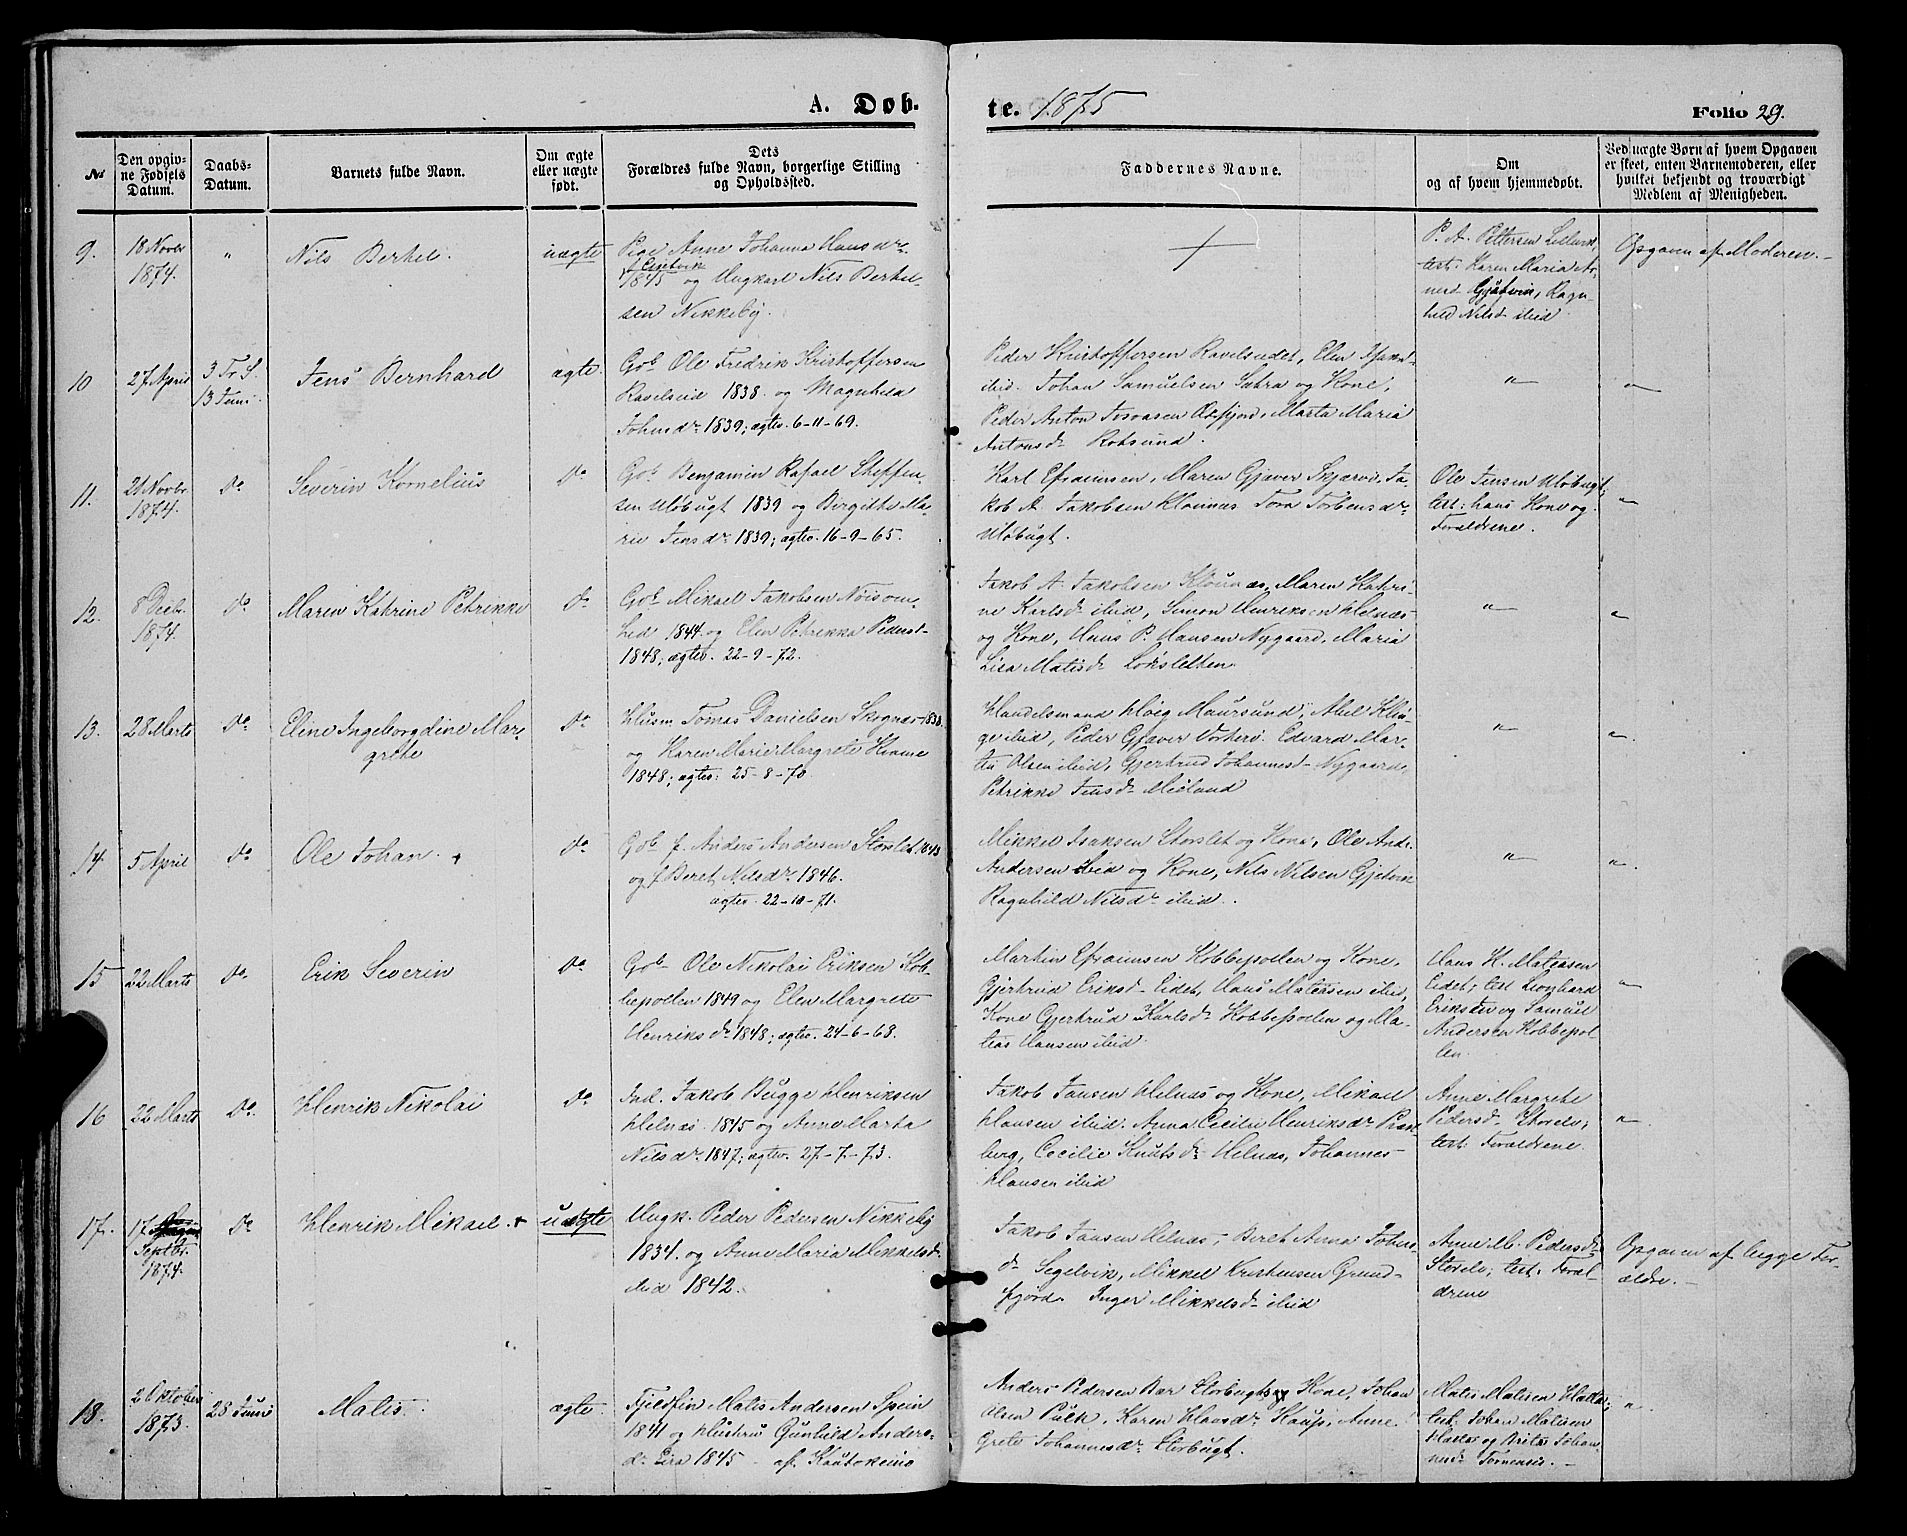 A. Døb-
te. 1875
Folio 29.
No
Den opgiv-
ne Fødsels
Datum.
Daabs-
Datum.
Barnets fulde Navn.
Om ægte
eller uægte
født.
Dets
Forældres fulde Navn, borgerlige Stilling
og Opholdssted.
Faddernes Navne.
Om
og af hvem hjemmedøbt.
Ved uægte Børn af hvem Opgaven
er skeet, enten Barnemoderen, eller
hvilket bekjendt og troværdigt
Medlem af Menigheden.
9.
18 Novbr
1874.
"
Nils Berhel.
uægte
Pige Anne Johanna Hansdr.
1845 og Ungkarl Nils Berhel-
sen Nikkeby.
P. A. Pettersen
test: Karen Maria
Gjøtvik, Ragn-
hild Nilsd ibid
Opgaven af Moderen.
10
27 April
3 Tr. S.
13 Juni
Jens Bernhard
ægte.
Gbr Ole Fredrik Kristoffersen
Ravelseid 1838 og Magnhild
Johnsdr. 1839; ægtev. 6-11-69.
Peder Kristoffersen Ravelseidet, Elen
ibid. Johan Samuelsen Sakra og Kone,
Peder Anton Josvasen Oxfjord, Marta Maria
Antonsdr Rotsund.
"
"
11.
21 Novbr.
1874.
Do
Severin Kornelius
Do
Gbr Benjamin Rafael Steffen
sen Uløbugt 1839 og Birgitte Ma-
rie Jensdr. 1839; ægtev. 16-9-65.
Karl Efraimsen, Maren Gjæver Skjærvø, Ja-
kob A. Jakobsen Kløvnes Tora Torbensdr.
Uløbugt.
Ole Jensen Uløbugt;
test: hans Kone og
Forældrene.
"
12.
8 Decbr.
1874.
Do
Maren Katrine Petrikke
Do
Gbr Mikael Jakobsen Nøisom-
hed 1844 og Elen Petrikka Pedersd
1848; ægtev. 22-9-72.
Jakob A. Jakobsen Kløvnes, Maren Katri-
ne Karlsd ibid, Simon Henriksen Helnæs
og Kone, Hans P. Hansen Nygaard, Maria
Lisa Matisd Lökvletten
"
"
13.
28 Marts
Do
Eline Ingeborgdine Mar-
grete
Do
Husm Tomas Danielsen Skognæs 1838
og Karen Marie Margrete Kvame
1848; ægtev. 25-8-70.
Handelsmand Høeg Maursund, Abel
ibid, Peder Gjæver Vorterø. Edvard Mar-
tin Olsen ibid, Gjertrud Johannesd Nygaard,
Petrikke Jensd Meiland
"
"
14
5 April
Do
Ole Johan. +
Do
Gbr f. Anders Andersen Storslet 1843
og f Beret Nilsdr. 1846.
ægtev. 22-10-71.
Mikkel Isaksen Storslet og Kone, Ole And.
Andersen ibid og Kone, Nils Nilsen Gjøtvik
Ragnhild Nilsdr ibid.
"
"
15
22 Marts
Do
Erik Severin
Do
Gbr Ole Nikolai Eriksen Kob-
bepollen 1849 og Elen Margrete
Henriksdr 1848; ægtev. 24-6-68.
Martin Efraimsen Kobbepollen og Kone,
Gjertrud Eriksd Eidet, Hans Matessen ibid,
Kone Gjertrud Karlsd Kobbepollen og Ma-
teas Hansen ibid
Hans H. Mateasen
Eidet; test Leonhard
Eriksen og Samuel
Andersen Kobbepol-
len.
"
16
22 Marts
Do.
Henrik Nikolai
Do
Ind. Jakob Bugge Henriksen
Helnæs 1845 og Anne Marta
Nilsdr. 1847; ægtev. 27-7-73.
Jakob Jansen Helnæs og Kone, Mikael
Hansen ibid. Anna Cecilie Henriksdr
berg, Cecilie Knutsdr Helnæs, Johannes
Hansen ibid
Anne Margrete
Pedersd Storelv;
test: Forældrene
"
17.
17
Septbr.
1874.
Do
Henrik Mikael +
uægte
Ungk. Peder Pedersen Nikkeby
1834. og Anne Maria Mikkelsdr
ibid 1842.
Jakob Jansen Helnæs, Beret Anna Johns-
dr Segelvik, Mikkel Kristensen Grund-
fjord. Inger Mikkelsdr ibid
Anne M. Pedersdr
Storelv; test: Foræl-
drene
Opgaven af begge For-
ældre.
18.
2 Oktober
1873.
28 Juni
Matis.
ægte
Fjeldfin Matis Andersen Spein
1841 og Hustru Gunhild Anders-
dr Eira 1845 af Kautokeino
Anders Pedersen Bær Storbugt og Kone, Johan
Olsen Pulk, Karen Hansdr Kaup, Anne
Grete Johannesdr Storbugt.
Matis Matisen Hætta;
test: Johan Matisen
Hætta og Brita Johan-
nesd Tornensis.
"